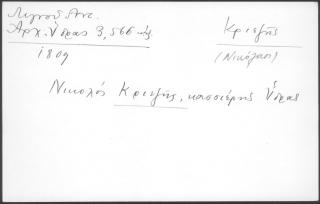 Λιγνοῦ Ἀντ.
Ἀρχ. Ὕδρας 3, 566 κἑ.
1809
Κριεζῆς
(Νικόλαος)
Νικολός Κριεζῆς, κασσιέρης Ὕδρας